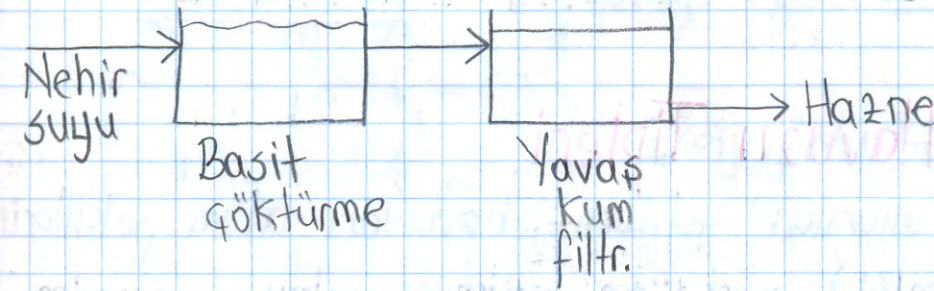 Nehir
suyu
Basit
çöktürme
Yavaş
kum
filtr.
Hazne